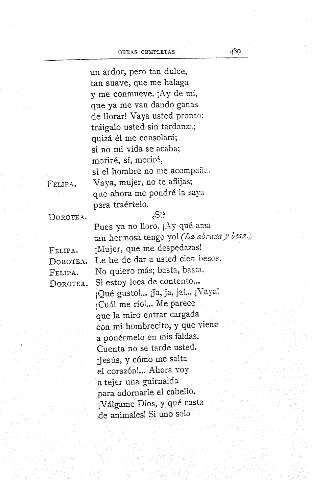 OBRAS COMPLETAS 489
un ardor, pero tan dulce,
tan suave, que me halaga
y me conmueve. ¡Ay de mí,
que ya me van dando ganas
de llorar! Vaya usted pronto;
tráigalo usted sin tardanza;
quizá él me consolará;
si no mi vida se acaba;
moriré, sí, moriré,
si el hombre no me acompaña.
FELIPA. Vaya, mujer, no te aflijas;
que ahora me pondré la saya
para traértelo.
DOROTEA. ¿Sí?
Pues ya no lloro. ¡Ay qué ama
tan hermosa tengo yo! (La abraza y besa.)
FELIPA. ¡Mujer, que me despedazas!
DOROTEA. Le he de dar a usted cien besos.
FELIPA. No quiero más; basta, basta.
DOROTEA. Si estoy loca de contento...
¡Qué gusto!... ¡Ja, ja, ja!... ¡Vaya!
¡Cuál me río!... Me parece
que la miro entrar cargada
con mi hombrecito, y que viene
a ponérmelo en mis faldas.
Cuenta no se tarde usted.
¡Jesús, y cómo me salta
el corazón!... Ahora voy
a tejer una guirnalda
para adornarle el cabello.
¡Válgame Dios, y qué casta
de animales! Si uno solo